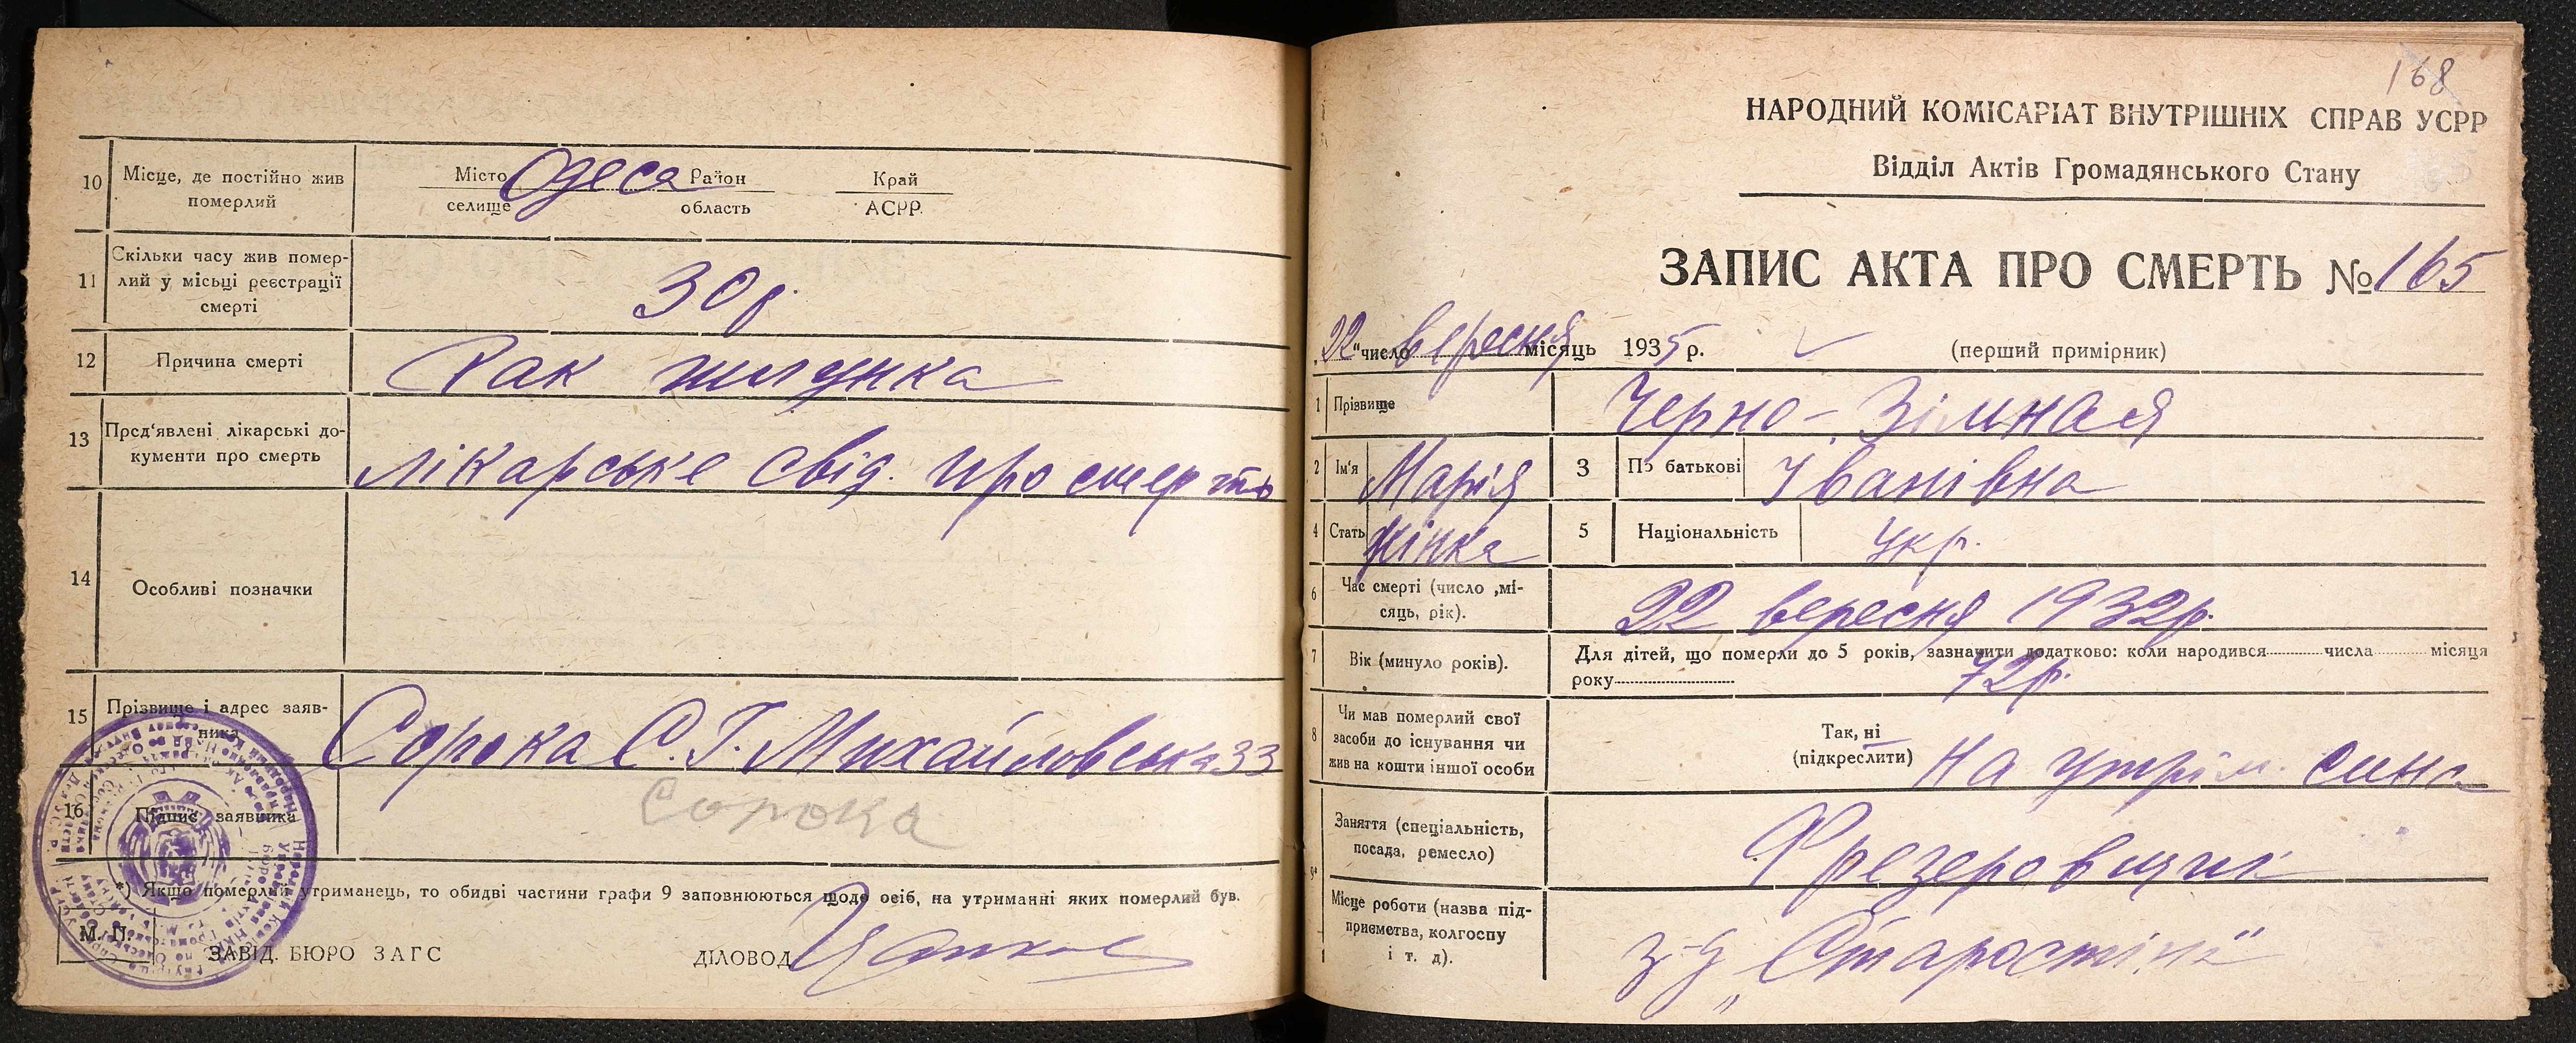 10
Місце, де постійно жив
померлий
Місто
селище
Одеса
Район
область
Край
АСРР.
11
Скільки часу жив помер-
лий у місці реєстрації
смерті
30 р.
12
Причина смерті
Рак шлунка
13
Пред'явлені лікарські до-
кументи про смерть
лікарське свід. про смерть
14
Особливі позначки
15
Прізвище і адрес заяв-
ника
Сорока С. Г. Михайловська 33
16
Підпис заявника
Сорока
*) Якщо померлий утриманець, то обидві частини графи 9 заповнюються щодо осіб, на утриманні яких померлий був.
М. П.
ЗАВІД. БЮРО ЗАГС
ДІЛОВОД
168
НАРОДНИЙ КОМІСАРІАТ ВНУТРІШНІХ СПРАВ УСРР
Відділ Актів Громадянського Стану
ЗАПИС АКТА ПРО СМЕРТЬ № 165
„22“ число вересня місяць 1935 р.
(перший примірник)
1 Прізвище
Черно-Зімная
2 Ім'я Марія
3 По батькові Іванівна
4 Стать жінка
5 Національність укр.
6 Час смерті (число ,мі-
сяць, рік).
22 вересня 1932р.
7 Вік (минуло років).
Для дітей, що померли до 5 років, зазначити додатково: коли народився числа місяця
року
72р.
8
Чи мав померлий свої
засоби до існування чи
жив на кошти іншої особи
Так, ні
(підкреслити)
на утрім. сина
9*
Заняття (спеціальність,
посада, ремесло)
Фрезеровщик
Місце роботи (назва під-
приємства, колгоспу
і т. д).
з-д „Старостіна“